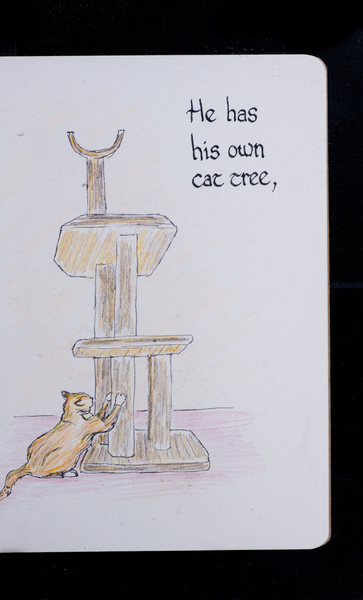 He has
his own
cat tree,